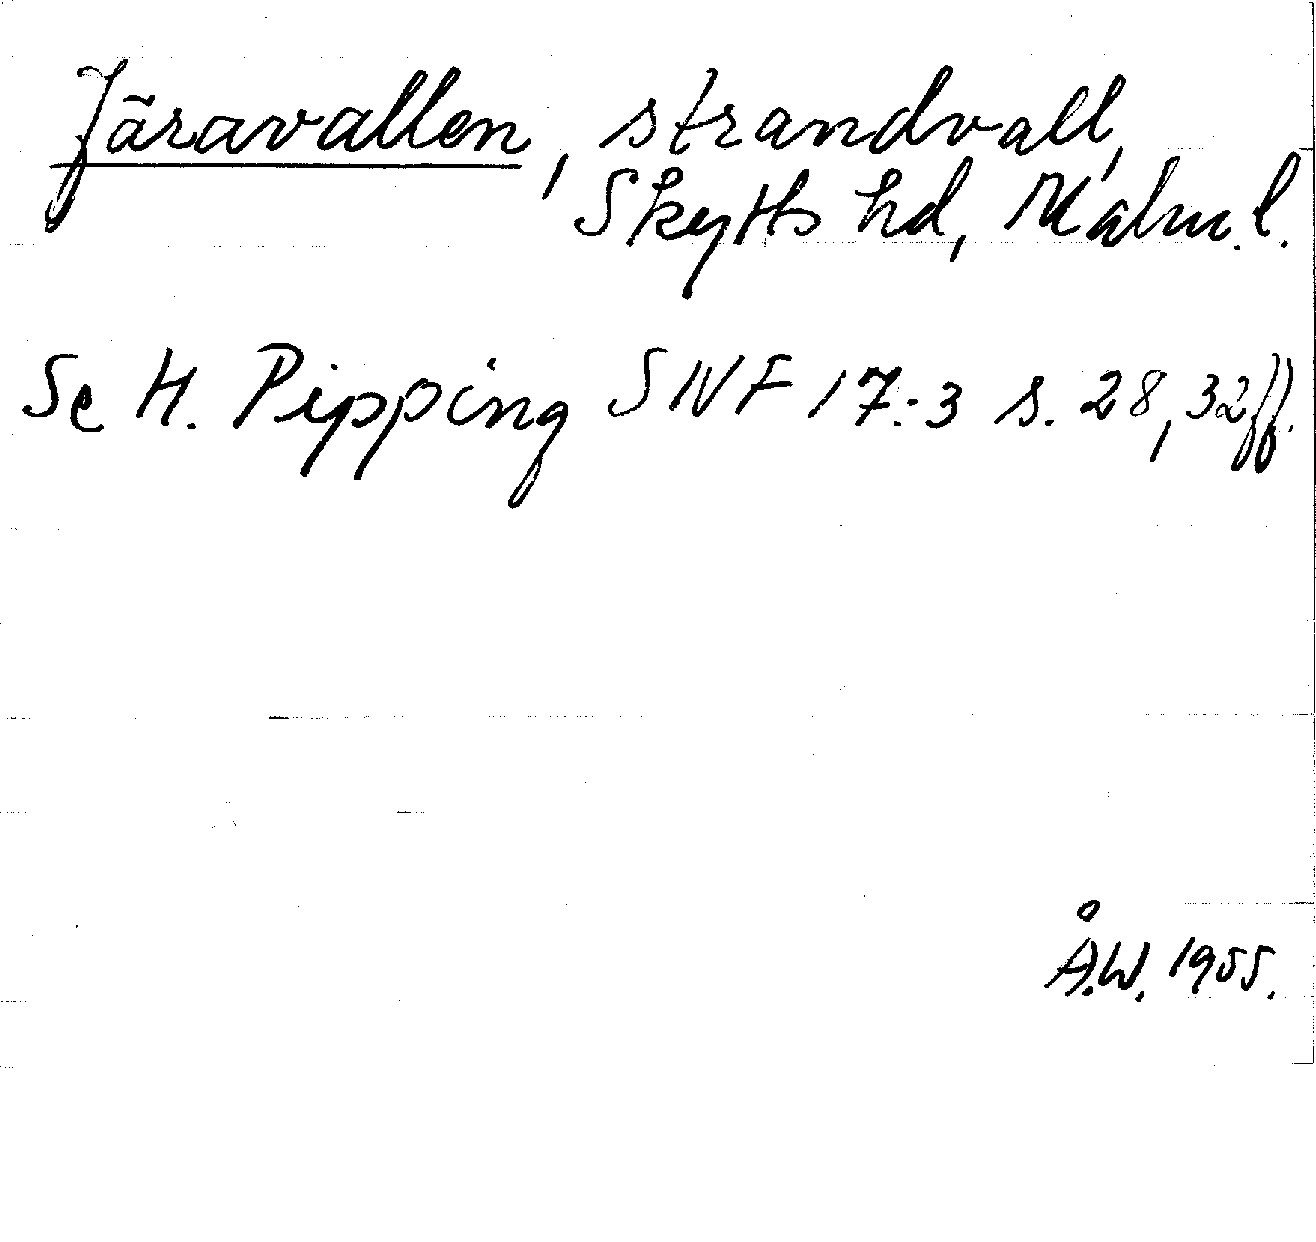 Järavallen, strandvall,
Skytts hd, Malm. l.
Se H. Pipping SNF 17:3 s. 28, 32ff.
Å.W. 1955.